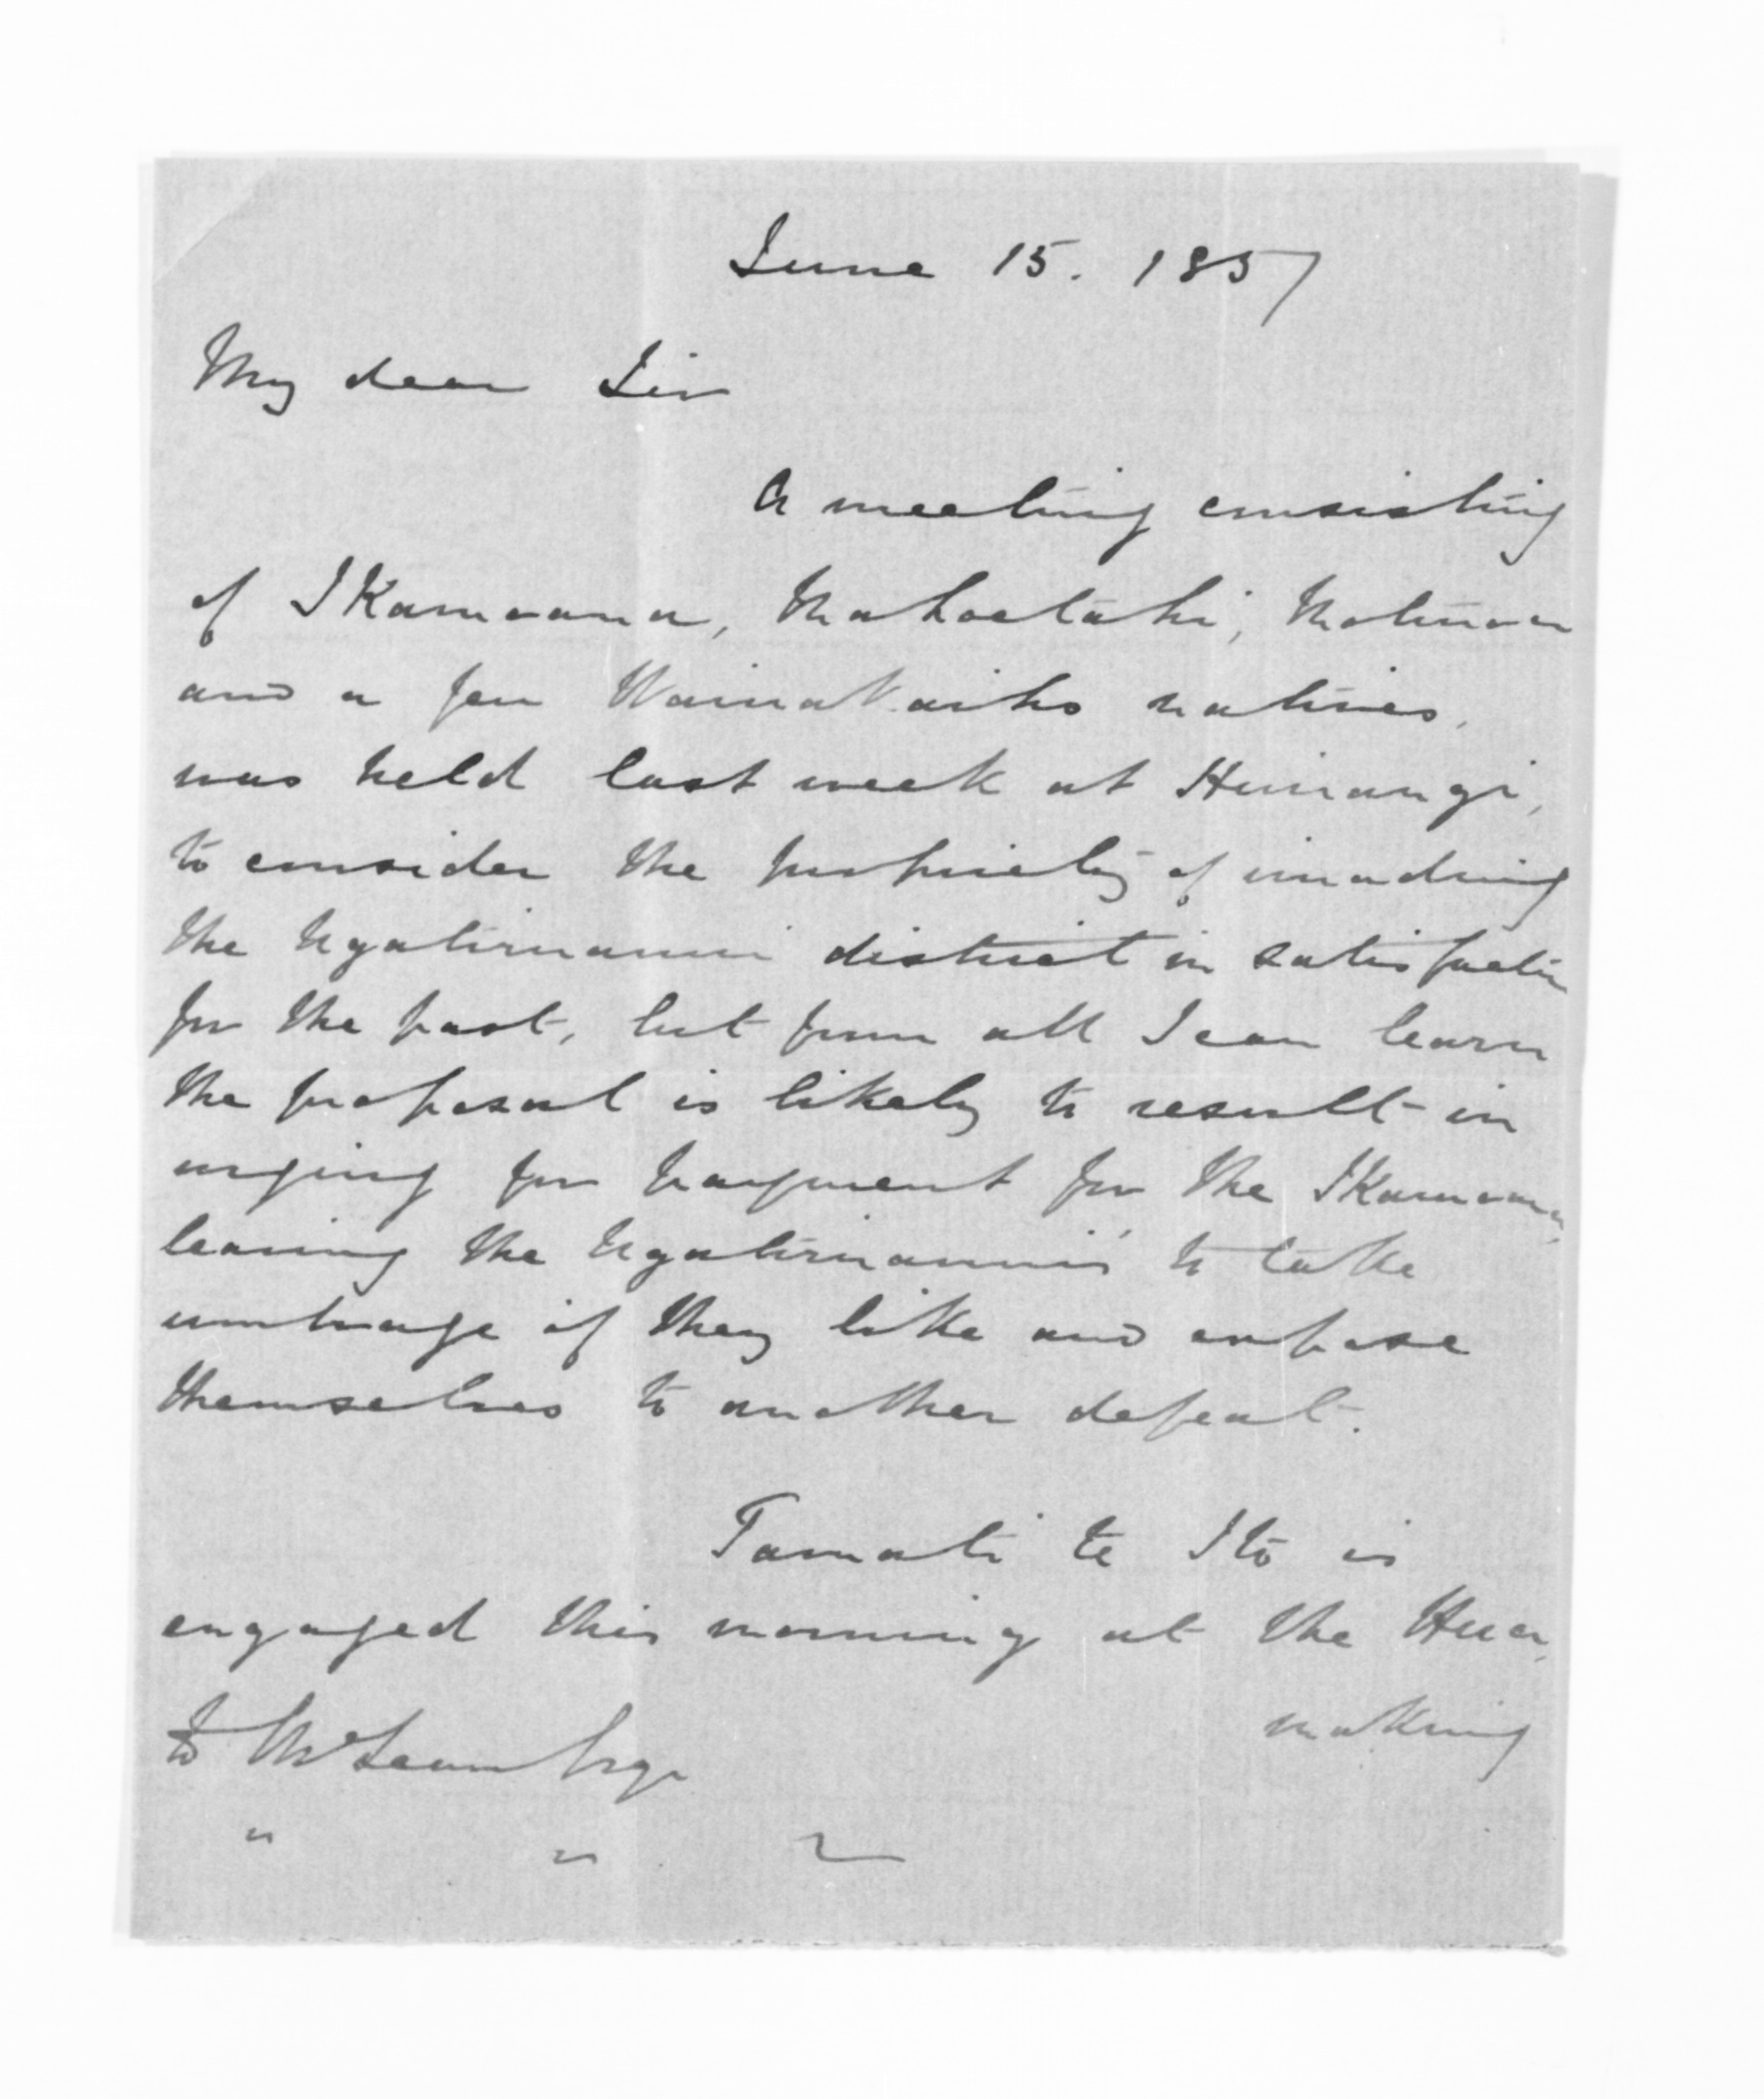 June 15. 1857
My dear Sir
A meeting consisting
of IKamoana, Mahoetahi, Matinoa
and a few Waiwakaiho natives,
was held last week at Huirangi,
to consider the propriety of invading
the Ngatiruanui district in satisfaction
for the past, but from all I can learn
the proposal is likely to result in
urging for payment for the IKamoana,
leaving the Ngatiruanuis to take
umbrage if they like and expose
themselves to another defeat.
Tamati te Ito is
engaged this morning at the Hua,
making
To McLean Esqr
" "